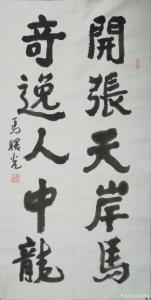 開張天岸馬
奇逸人中龍
馬驥光